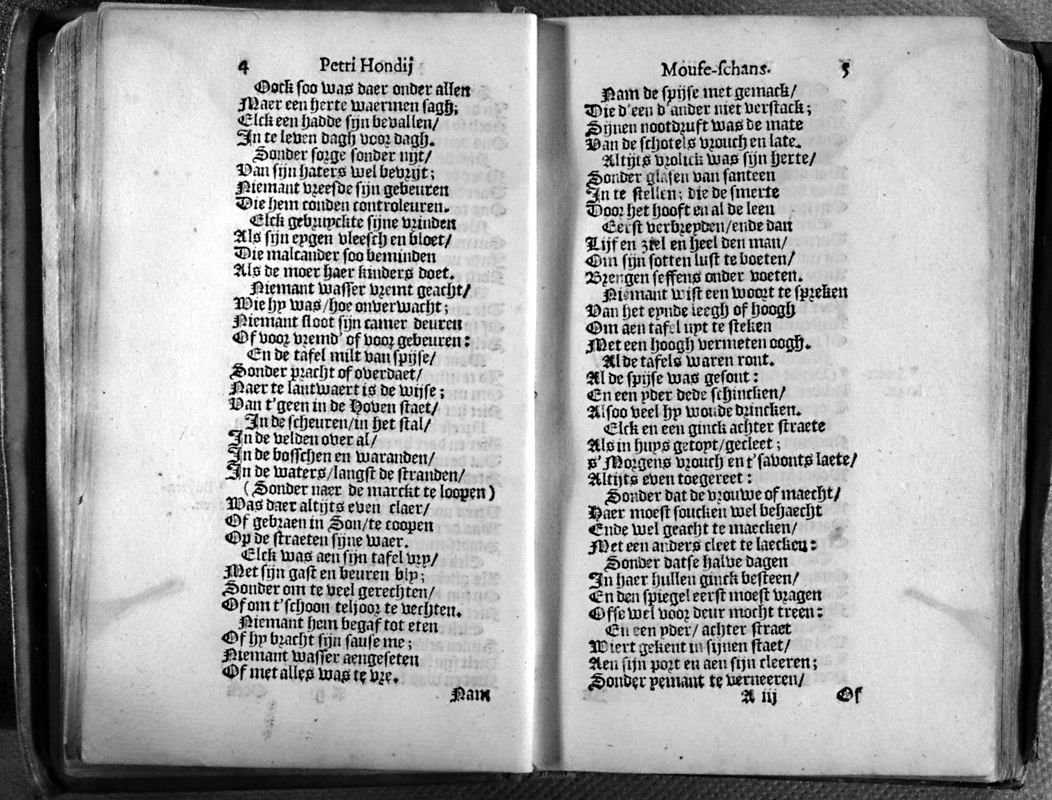 4 Petri Hondij
Oock soo was daer onder allen
Maer een herte waermen sagh;
Elck een hadde sijn bevallen/
In te leven dagh voor dagh.
Sonder sorge sonder nijt/
Van sijn haters wel bevrijt;
Niemant vreesde sijn gebeuren
Die hem conden controleuren.
Elck gebruyckte sijne vrinden
Als sijn eygen vleesch en bloet/
Die malcander soo beminden
Als de moer haer kinders doet.
Niemant wasser vremt geacht/
Wie hy was/hoe onverwacht;
Niemant sloot sijn camer deuren
Of voor vremd' of voor gebeuren:
En de tafel milt van spijse/
Sonder pracht of overdaet/
Naer te lantwaert is de wijse;
Van t'geen in de Hoven staet/
In de scheuren/in het stal/
In de velden over al/
In de bosschen en waranden/
In de waters/langst de stranden/
(Sonder naer de marckt te loopen)
Was daer altijts even claer/
Of gebraen in Son/te coopen
Op de straeten sijne waer.
Elck was aen sijn tafel vry/
Met sijn gast en beuren bly;
Sonder om te veel gerechten/
Of om t'schoon teljoor te vechten.
Niemant hem begaf tot eten
Of hy bracht sijn sause me;
Niemant wasser aengeseten
Of met alles was te vre.
Nam
Mouse-schans. 5
Nam de spijse met gemack/
Die d'een d'ander niet verstack;
Sijnen nootdruft was de mate
Van de schotels vrouch en late.
Altijts vrolick was sijn herte/
Sonder glasen van santeen
In te stellen; die de smerte
Door het hooft en al de leen
Eerst verbreyden/ende dan
Lijf en ziel en heel den man/
Om sijn sotten lust te boeten/
Brengen seffens onder voeten.
Niemant wist een woort te spreken
Van het eynde leegh of hoogh
Om aen tafel uyt te steken
Met een hoogh vermeten oogh.
Al de tafels waren ront.
Al de spijse was gesont:
En een yder dede schincken/
Alsoo veel hy woude drincken.
Elck en een ginck achter straete
Als in huys getoyt/gecleet;
s'Morgens vrouch en t'savonts laete/
Altijts even toegereet:
Sonder dat de vrouwe of maecht/
Haer moest soucken wel behaecht
Ende wel geacht te maecken/
Met een anders cleet te laecken:
Sonder datse halve dagen
In haer hullen ginck besteen/
En den spiegel eerst moest vragen
Ofse wel voor deur mocht treen:
En een yder/ achter straet
Wiert gekent in sijnen staet/
Aen sijn port en aen sijn cleeren;
Sonder yemant te verneeren/
A iij Of